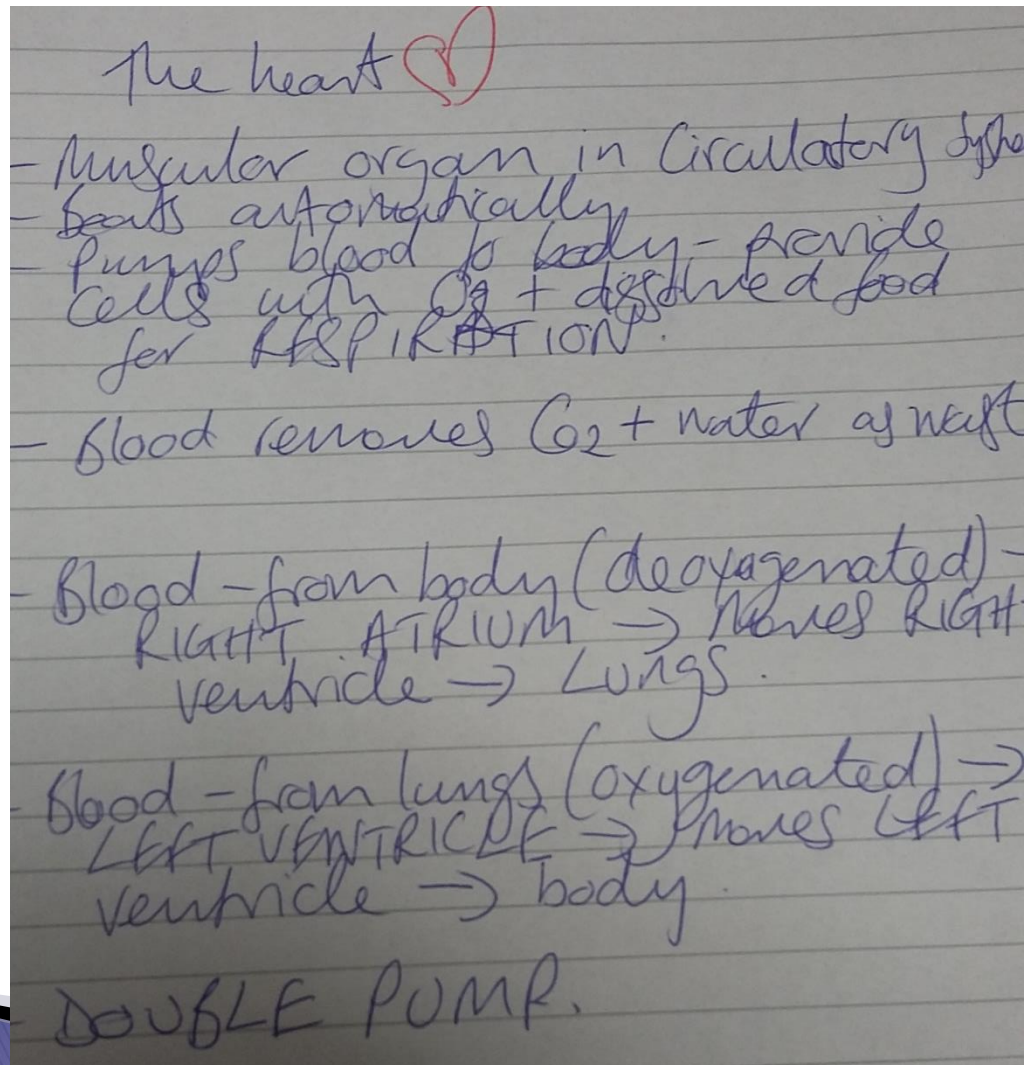 The heart
- Muscular organ in Circulatory Syste
- beats automatically
- Pumps blood to body - provide
cells with O2 + dissolved food
for RESPIRATION.
- Blood removes CO2 + water as wast
- Blood - from body (deoxagenated) -
RIGHT ATRIUM → moves RIGH
ventricle → Lungs.
- Blood - from lungs (oxygenated) →
LEFT VENTRICLE → moves LEFT
ventricle → body.
- DOUBLE PUMP.